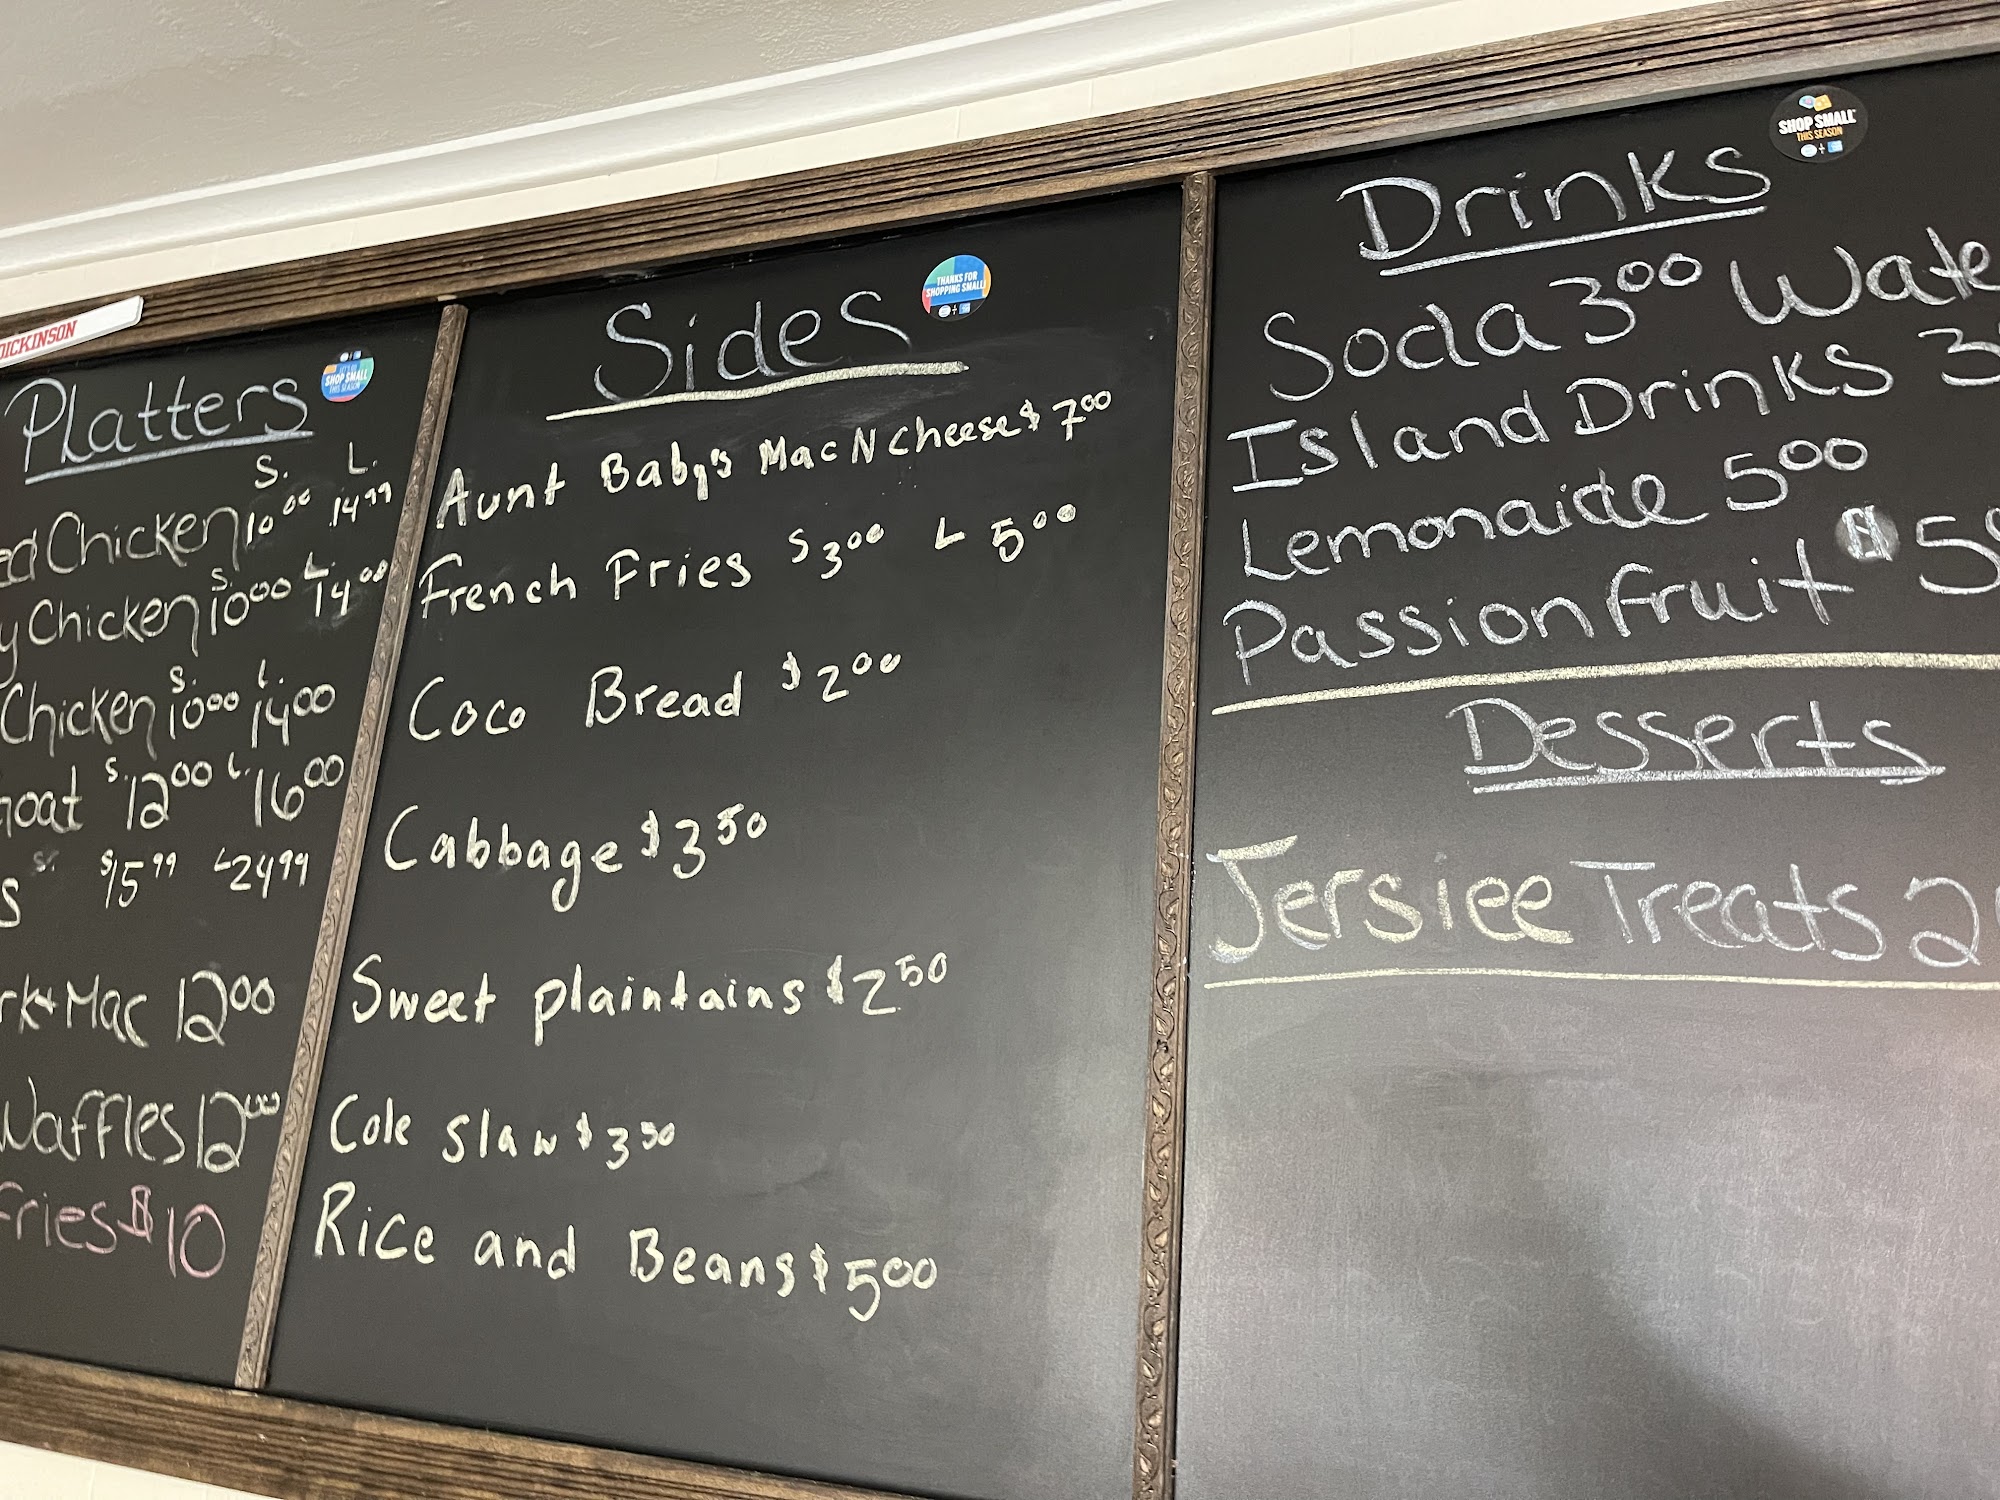 DICKINSON
Platters
LET'S GO
SHOP SMALL
THIS SEASON
S. L.
Chicken 10 00 14 99
S. L.
Chicken 10 00 14 00
S. L.
Chicken 10 00 14 00
S. 12 00 L. 16 00
S. $15 99 L 24 99
Mac 12 00
Waffles 12 00
Fries $10
Sides
THANKS FOR
SHOPPING SMALL
Aunt Baby's Mac N Cheese $ 7 00
French Fries S 3 00 L 5 00
Coco Bread $ 2 00
Cabbage $ 3 50
Sweet plaintains $ 2 50
Cole slaw $ 3 50
Rice and Beans $ 5 00
Drinks
SHOP SMALL
THIS SEASON
Soda 3 00 Wate
Island Drinks 3
Lemonaide 5 00
Passion fruit $ 5
Desserts
Jersiee Treats 2